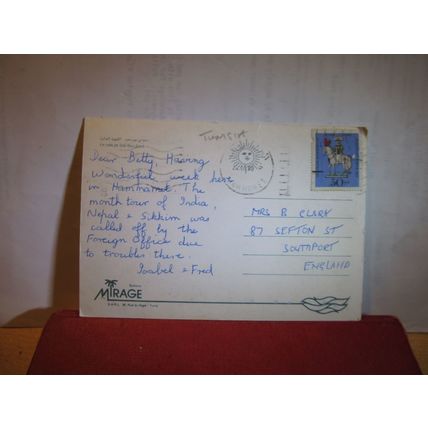 TUNISIA
Dear Betty, Having
Wonderful week here
in Hammamet. The
month tour of India,
Nepal & Sikkim was
called off by the
Foreign Office due
to troubles there.
Isabel & Fred
MRS B CLARK
87 SEFTON ST
SOUTHPORT
ENGLAND
50
MIRAGE